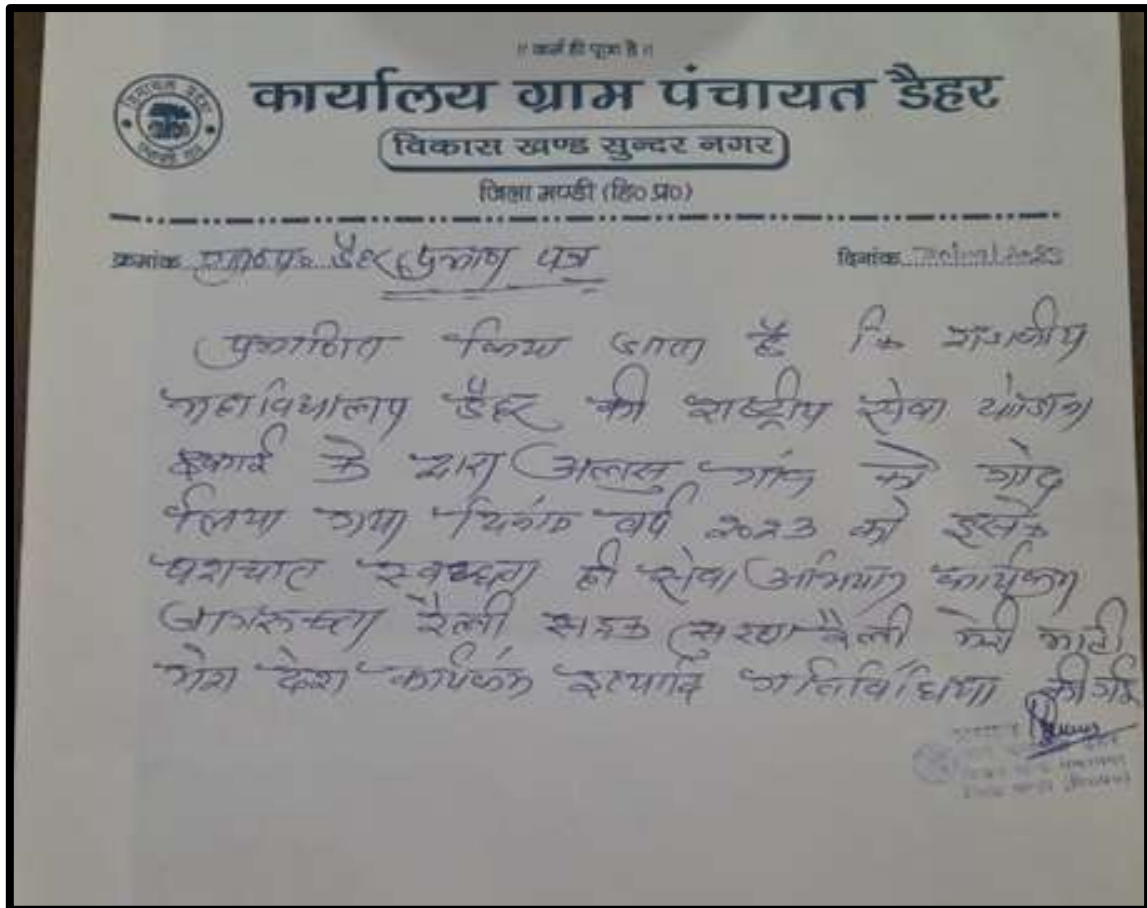 ॥ कर्म ही पूजा है ॥
कार्यालय ग्राम पंचायत डैहर
विकास खण्ड सुन्दर नगर
जिला मण्डी (हि० प्र०)
क्रमांक डैहर प्रमाण पत्र दिनांक
प्रमाणित किया जाता है कि राजकीय
महाविद्यालय डैहर की राष्ट्रीय सेवा योजना
इकाई के द्वारा अलसु गांव को गोद
लिया गया दिनांक वर्ष 2023 को इसके
पशचात स्वच्छता ही सेवा अभियान कार्यक्रम
जागरूकता रैली सड़क सुरक्षा रैली मेरी माटी
मेरा देश कार्यक्रम इत्यादि गतिविधियां की गई